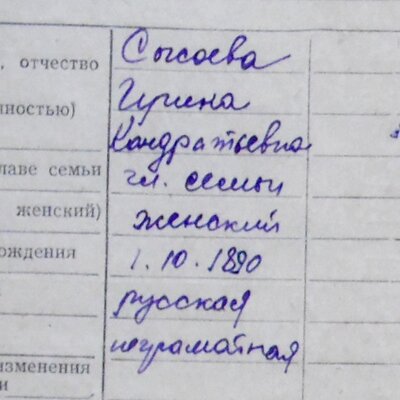 Сысоева
, отчество
Ирина
нностью)
Кондратьевна
лаве семьи
гл. семьи
женский)
женский
ождения
1.10.1890
русская
неграмотная
изменения
и